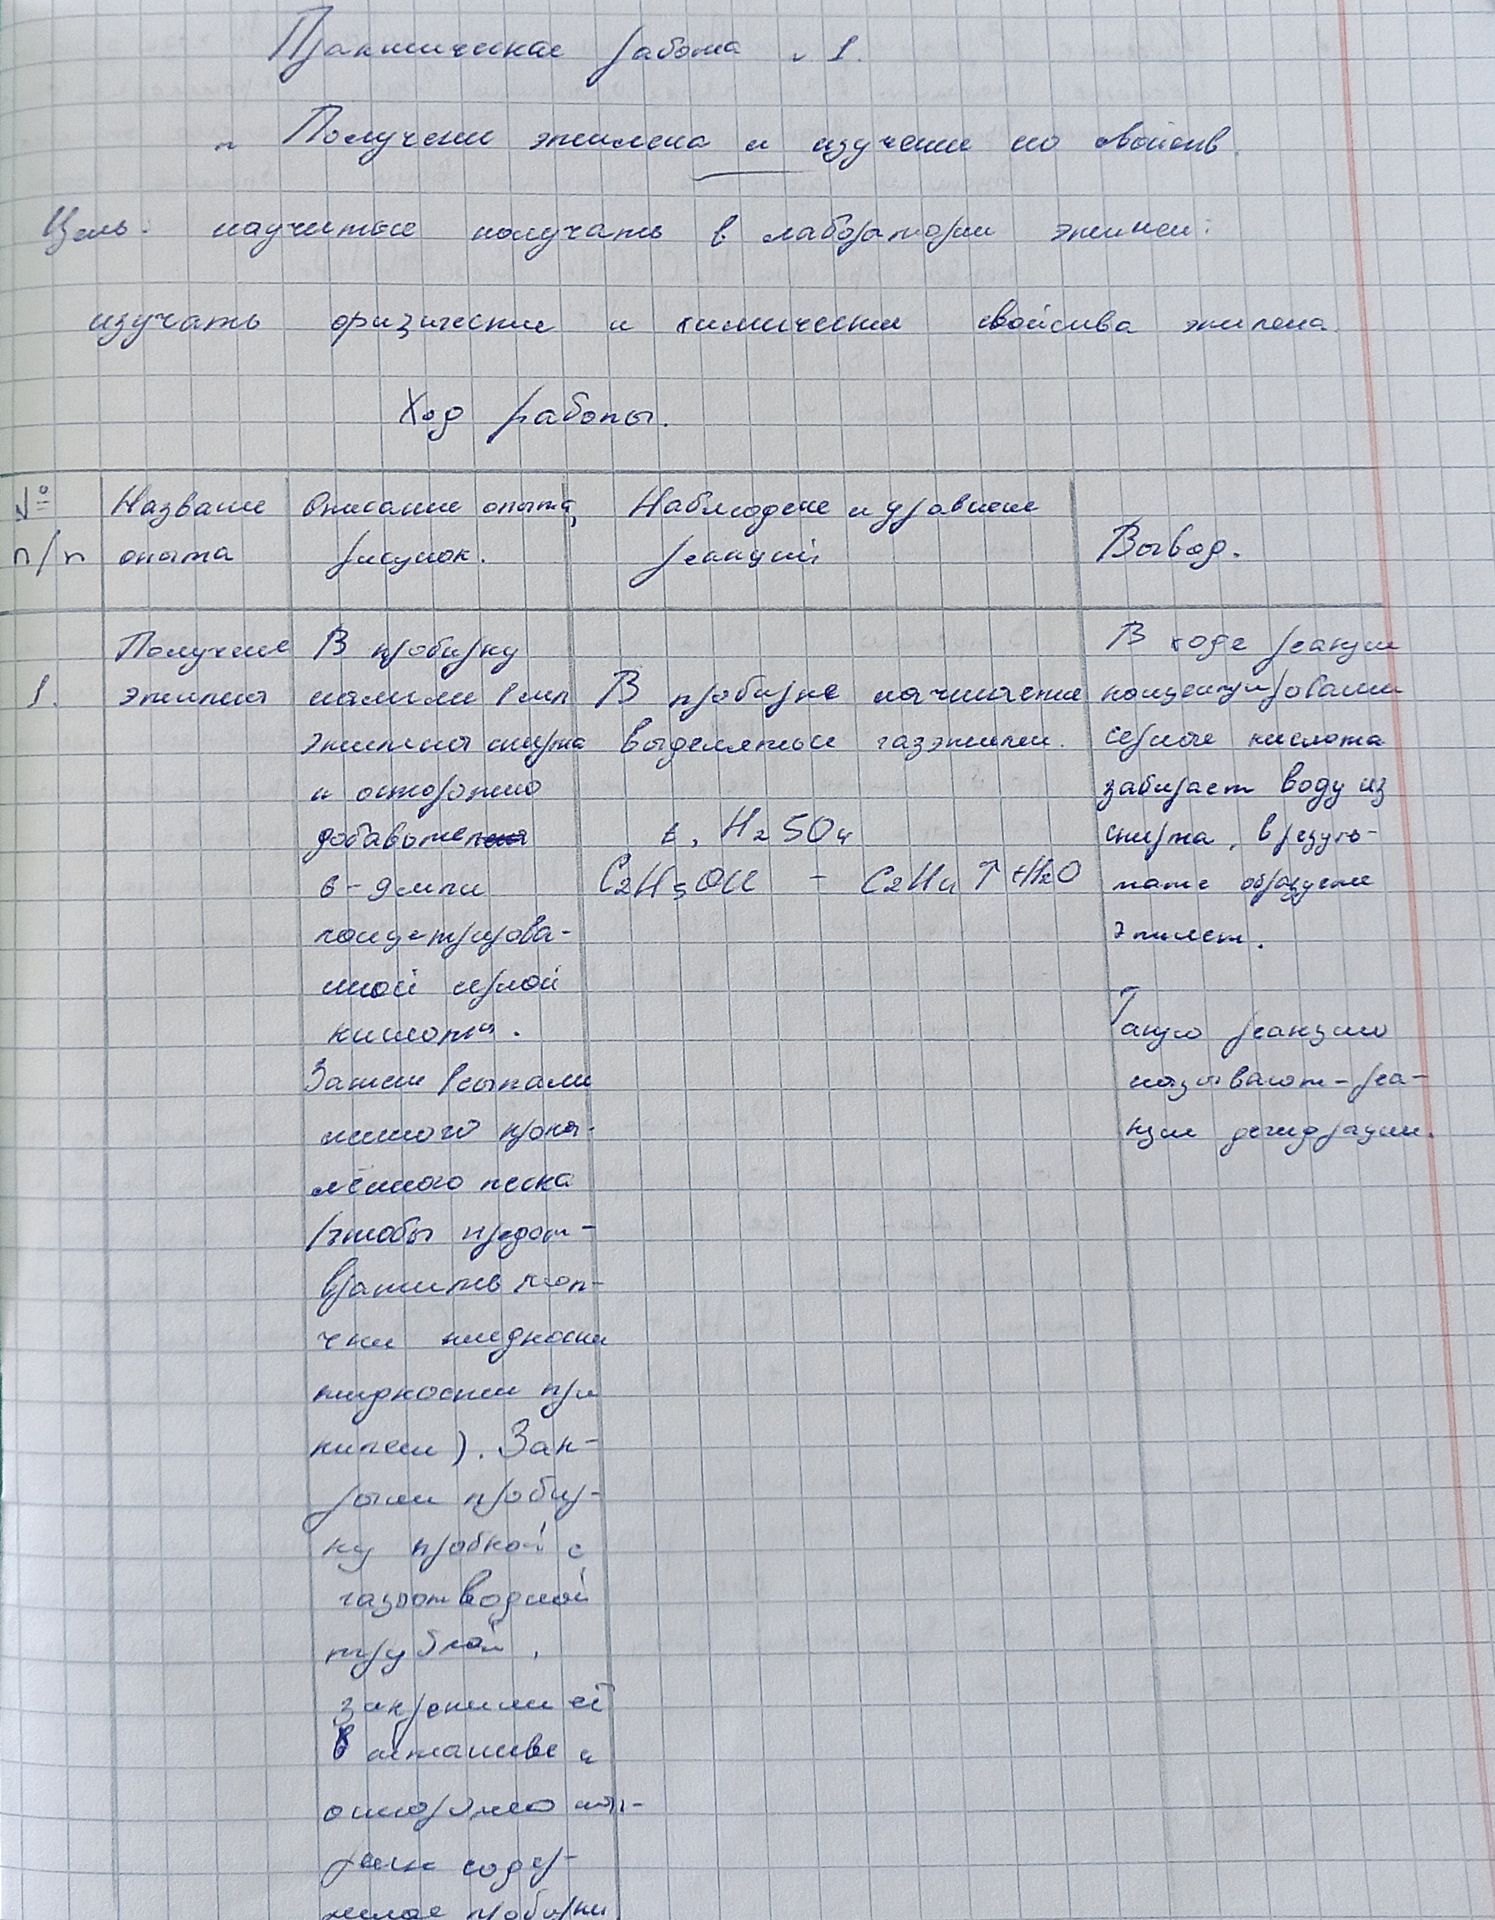 Практическая работа № 1.
" Получение этилена и изучение его свойств.
Цель: научиться получать в лаборатории этилен:
изучать физические и химические свойства этилена.
Ход работы.
№ п/п
Название опыта
Описание опыта, рисунок.
Наблюдение и уравнение реакций
Вывод.
1.
Получение
этилена
В пробирку
налили 1 мл
этилена спирта
и осторожно
добавили
6-9 мл
концентрирова-
нной серной
кислоты.
Затем всыпали
немного прока-
лённого песка
(чтобы предот-
вратить толч-
чки жидкости
жидкости при
кипении). Зак-
рыли пробир-
ку пробкой с
газоотводной
трубкой,
закрепили её
в штативе и
осторожно наг-
рели содер-
жимое пробирки
В пробирке начинает
выделяться газ этилен.
t, H2SO4
C2H5OH - C2H4 ↑ + H2O
В ходе реакции
концентрированная
серная кислота
забирает воду из
спирта, в резуль-
тате образуется
этилен.
Такую реакцию
называют - реа-
кция дегидрации.